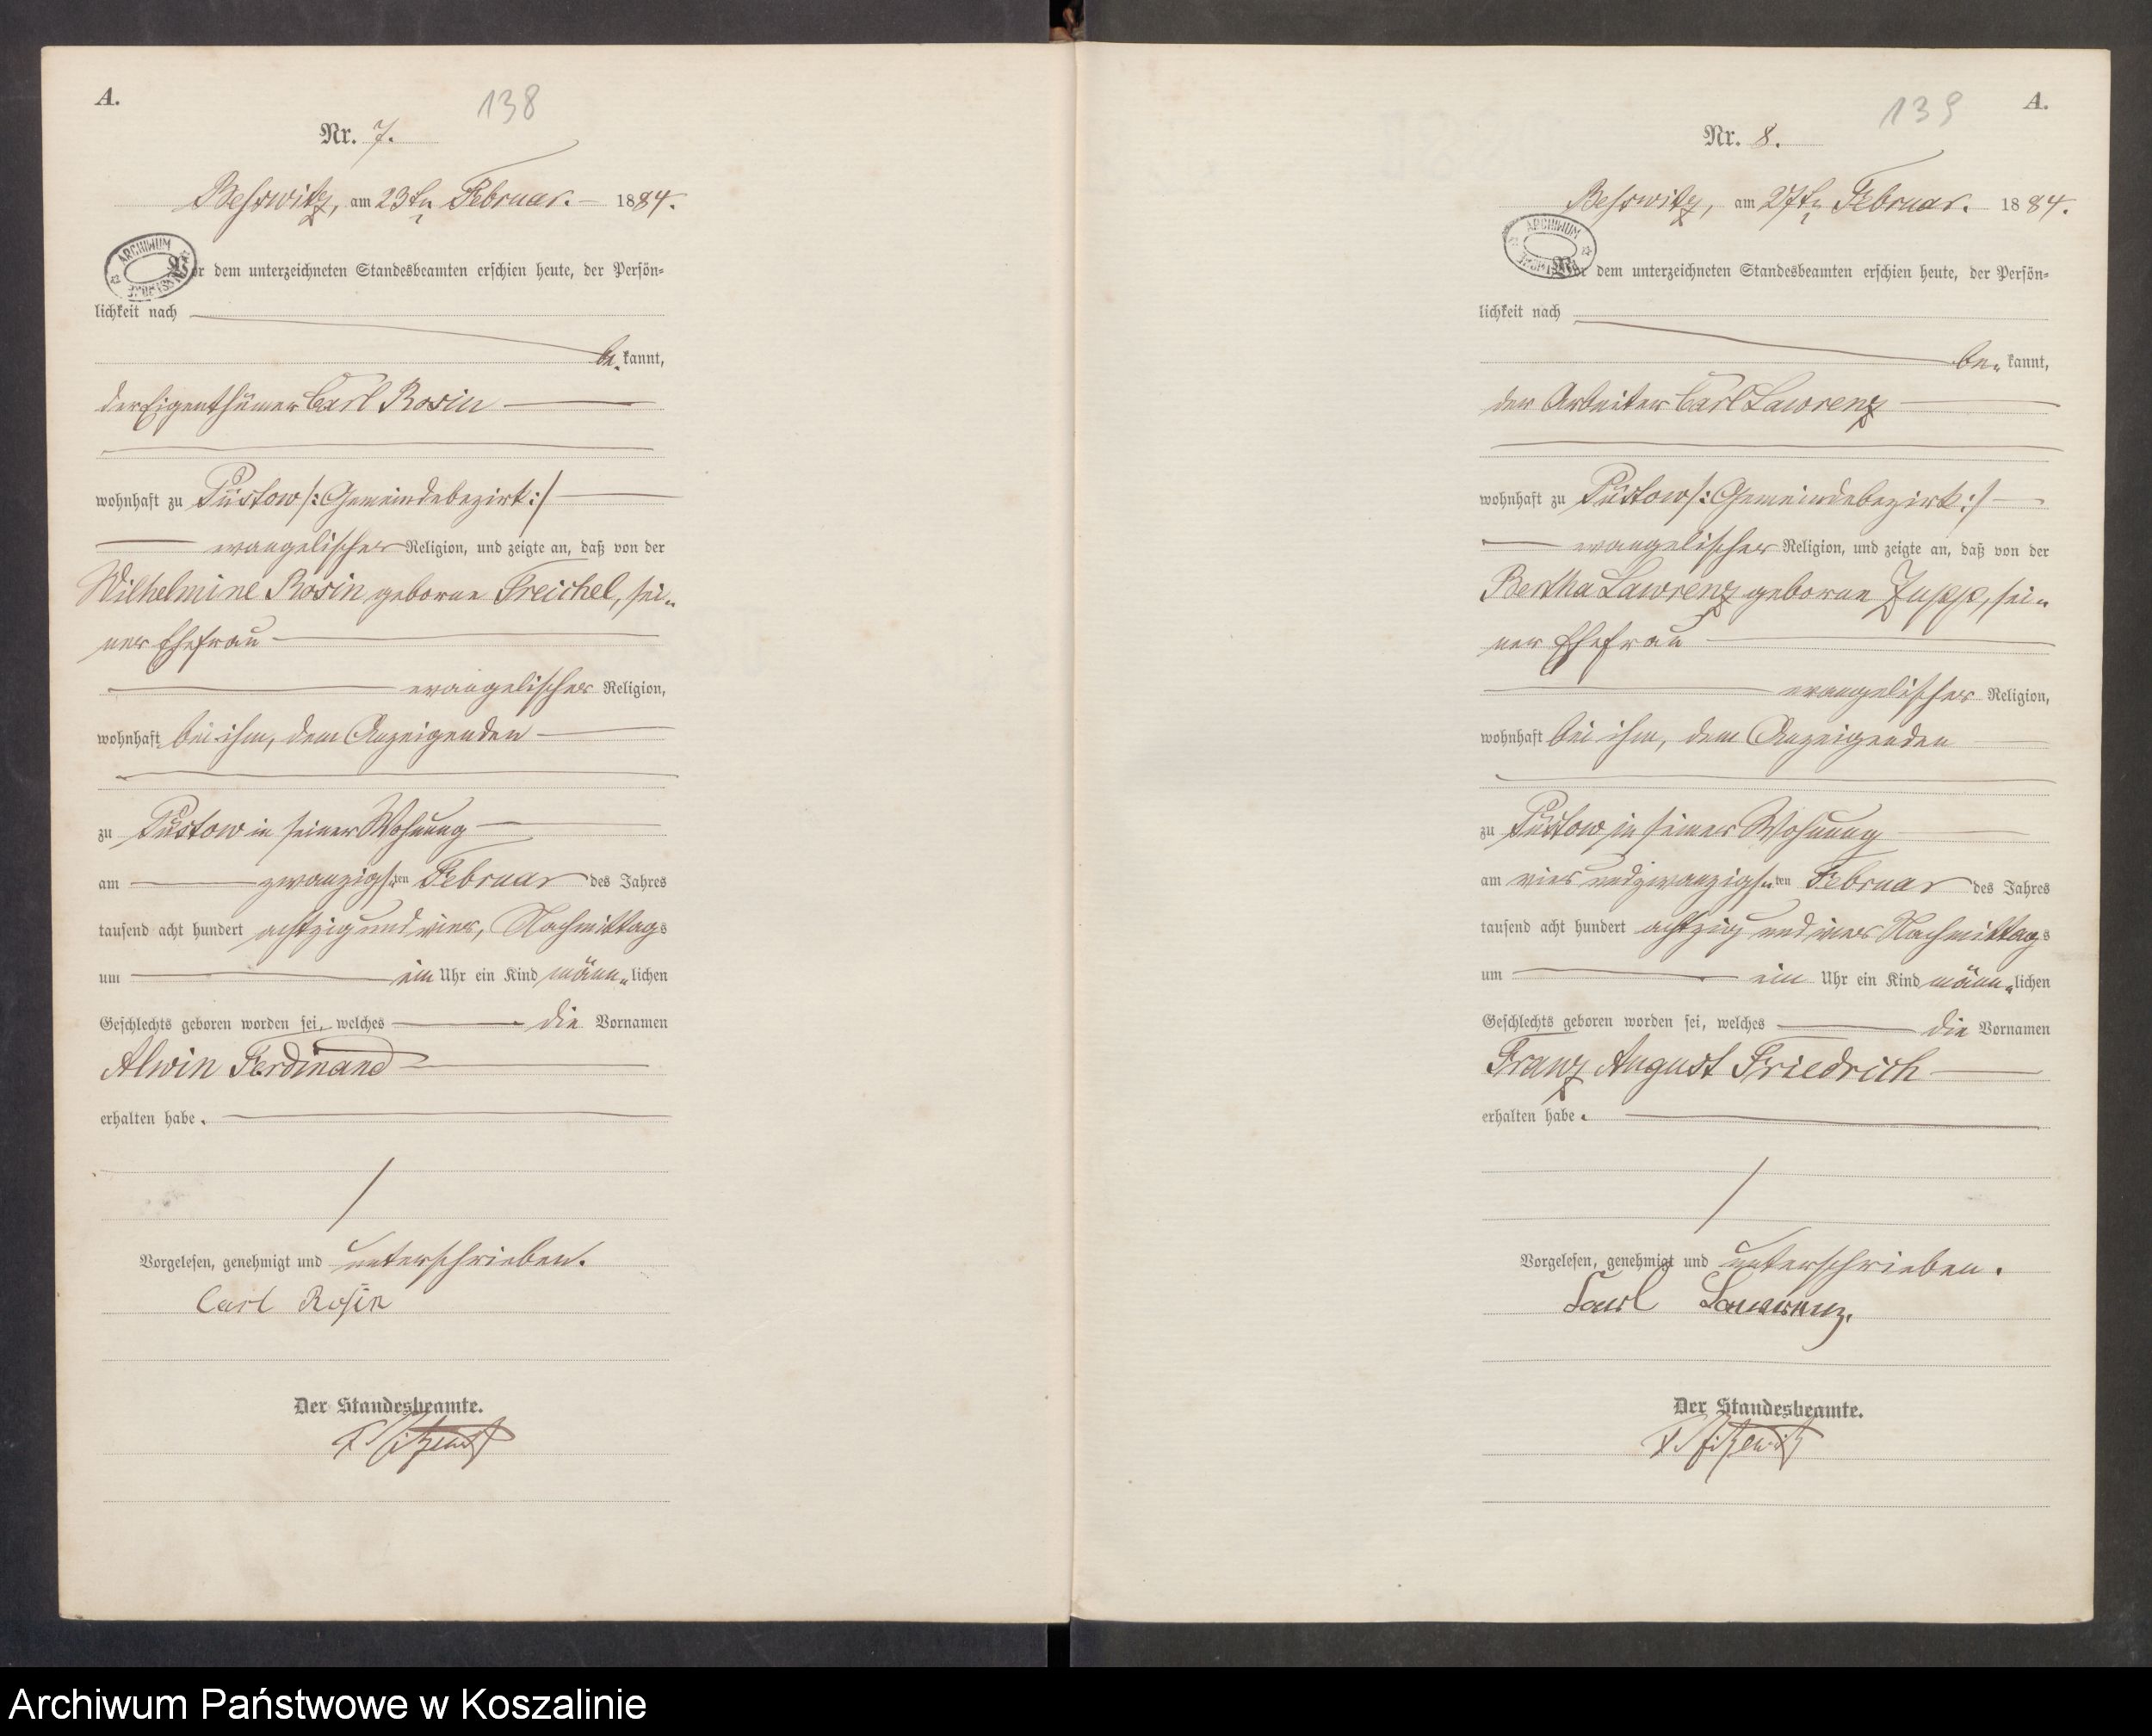 A.
138
Nr. 7.
Beßwitz, am 23ten Februar. 1884.
ARCHIWUM
Vor dem unterzeichneten Standesbeamten erschien heute, der Persön=
lichkeit nach
be kannt,
der Eigenthümer Carl Rosin
wohnhaft zu Püstow /: Gemeindebezirk :/
evangelischer Religion, und zeigte an, daß von der
Wilhelmine Rosin geborne Treichel, sei=
ner Ehefrau
evangelischer Religion,
wohnhaft bei ihm, dem Anzeigenden
zu Püstow in seiner Wohnung
am zwanzigsten Februar des Jahres
tausend acht hundert achtzig und vier, Nachmittags
um ein Uhr ein Kind männ=lichen
Geschlechts geboren worden sei, welches die Vornamen
Alwin Ferdinand
erhalten habe.
Vorgelesen, genehmigt und unterschrieben.
Carl Rosin
Der Standesbeamte.
A.
139
Nr. 8.
Beßwitz, am 27ten Februar. 1884.
ARCHIWUM
Vor dem unterzeichneten Standesbeamten erschien heute, der Persön=
lichkeit nach
be= kannt,
der Arbeiter Carl Lawrenz
wohnhaft zu Püstow /: Gemeindebezirk :/
evangelischer Religion, und zeigte an, daß von der
Bertha Lawrenz geborne Zupp, sei=
ner Ehefrau
evangelischer Religion,
wohnhaft bei ihm, dem Anzeigenden
zu Püstow in seiner Wohnung
am vier und zwanzigsten Februar des Jahres
tausend acht hundert achtzig und vier Nachmittags
um ein Uhr ein Kind männ=lichen
Geschlechts geboren worden sei, welches die Vornamen
Franz August Friedrich
erhalten habe.
Vorgelesen, genehmigt und unterschrieben.
Carl Lawrenz.
Der Standesbeamte.
Archiwum Państwowe w Koszalinie